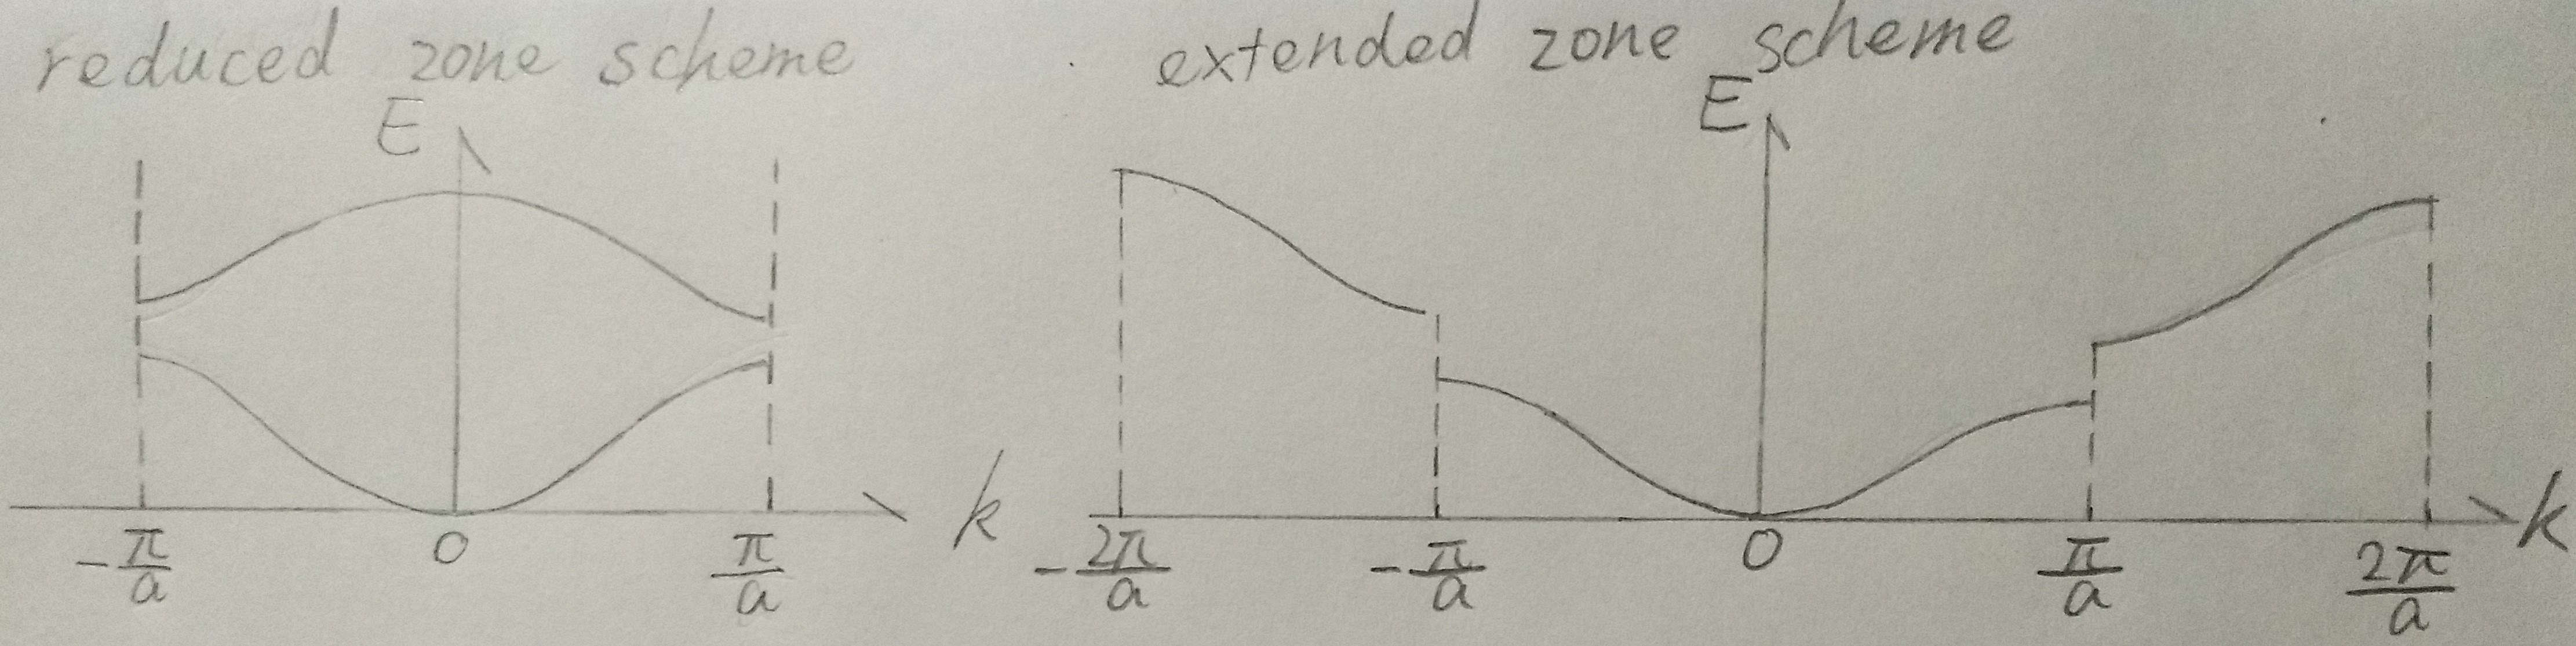 reduced zone scheme
E
-π/a 0 π/a k
extended zone scheme
E
-2π/a -π/a 0 π/a 2π/a k